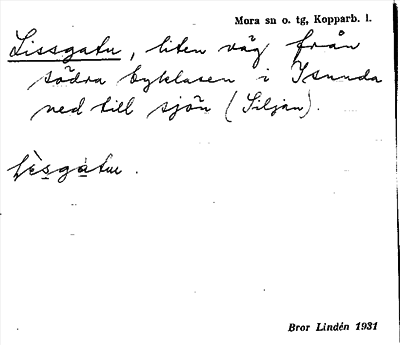 Mora sn o. tg, Kopparb. l.
Lissgatu, liten väg från
södra byklasen i Isunda
ned till sjön (Siljan).
Bror Lindén 1931